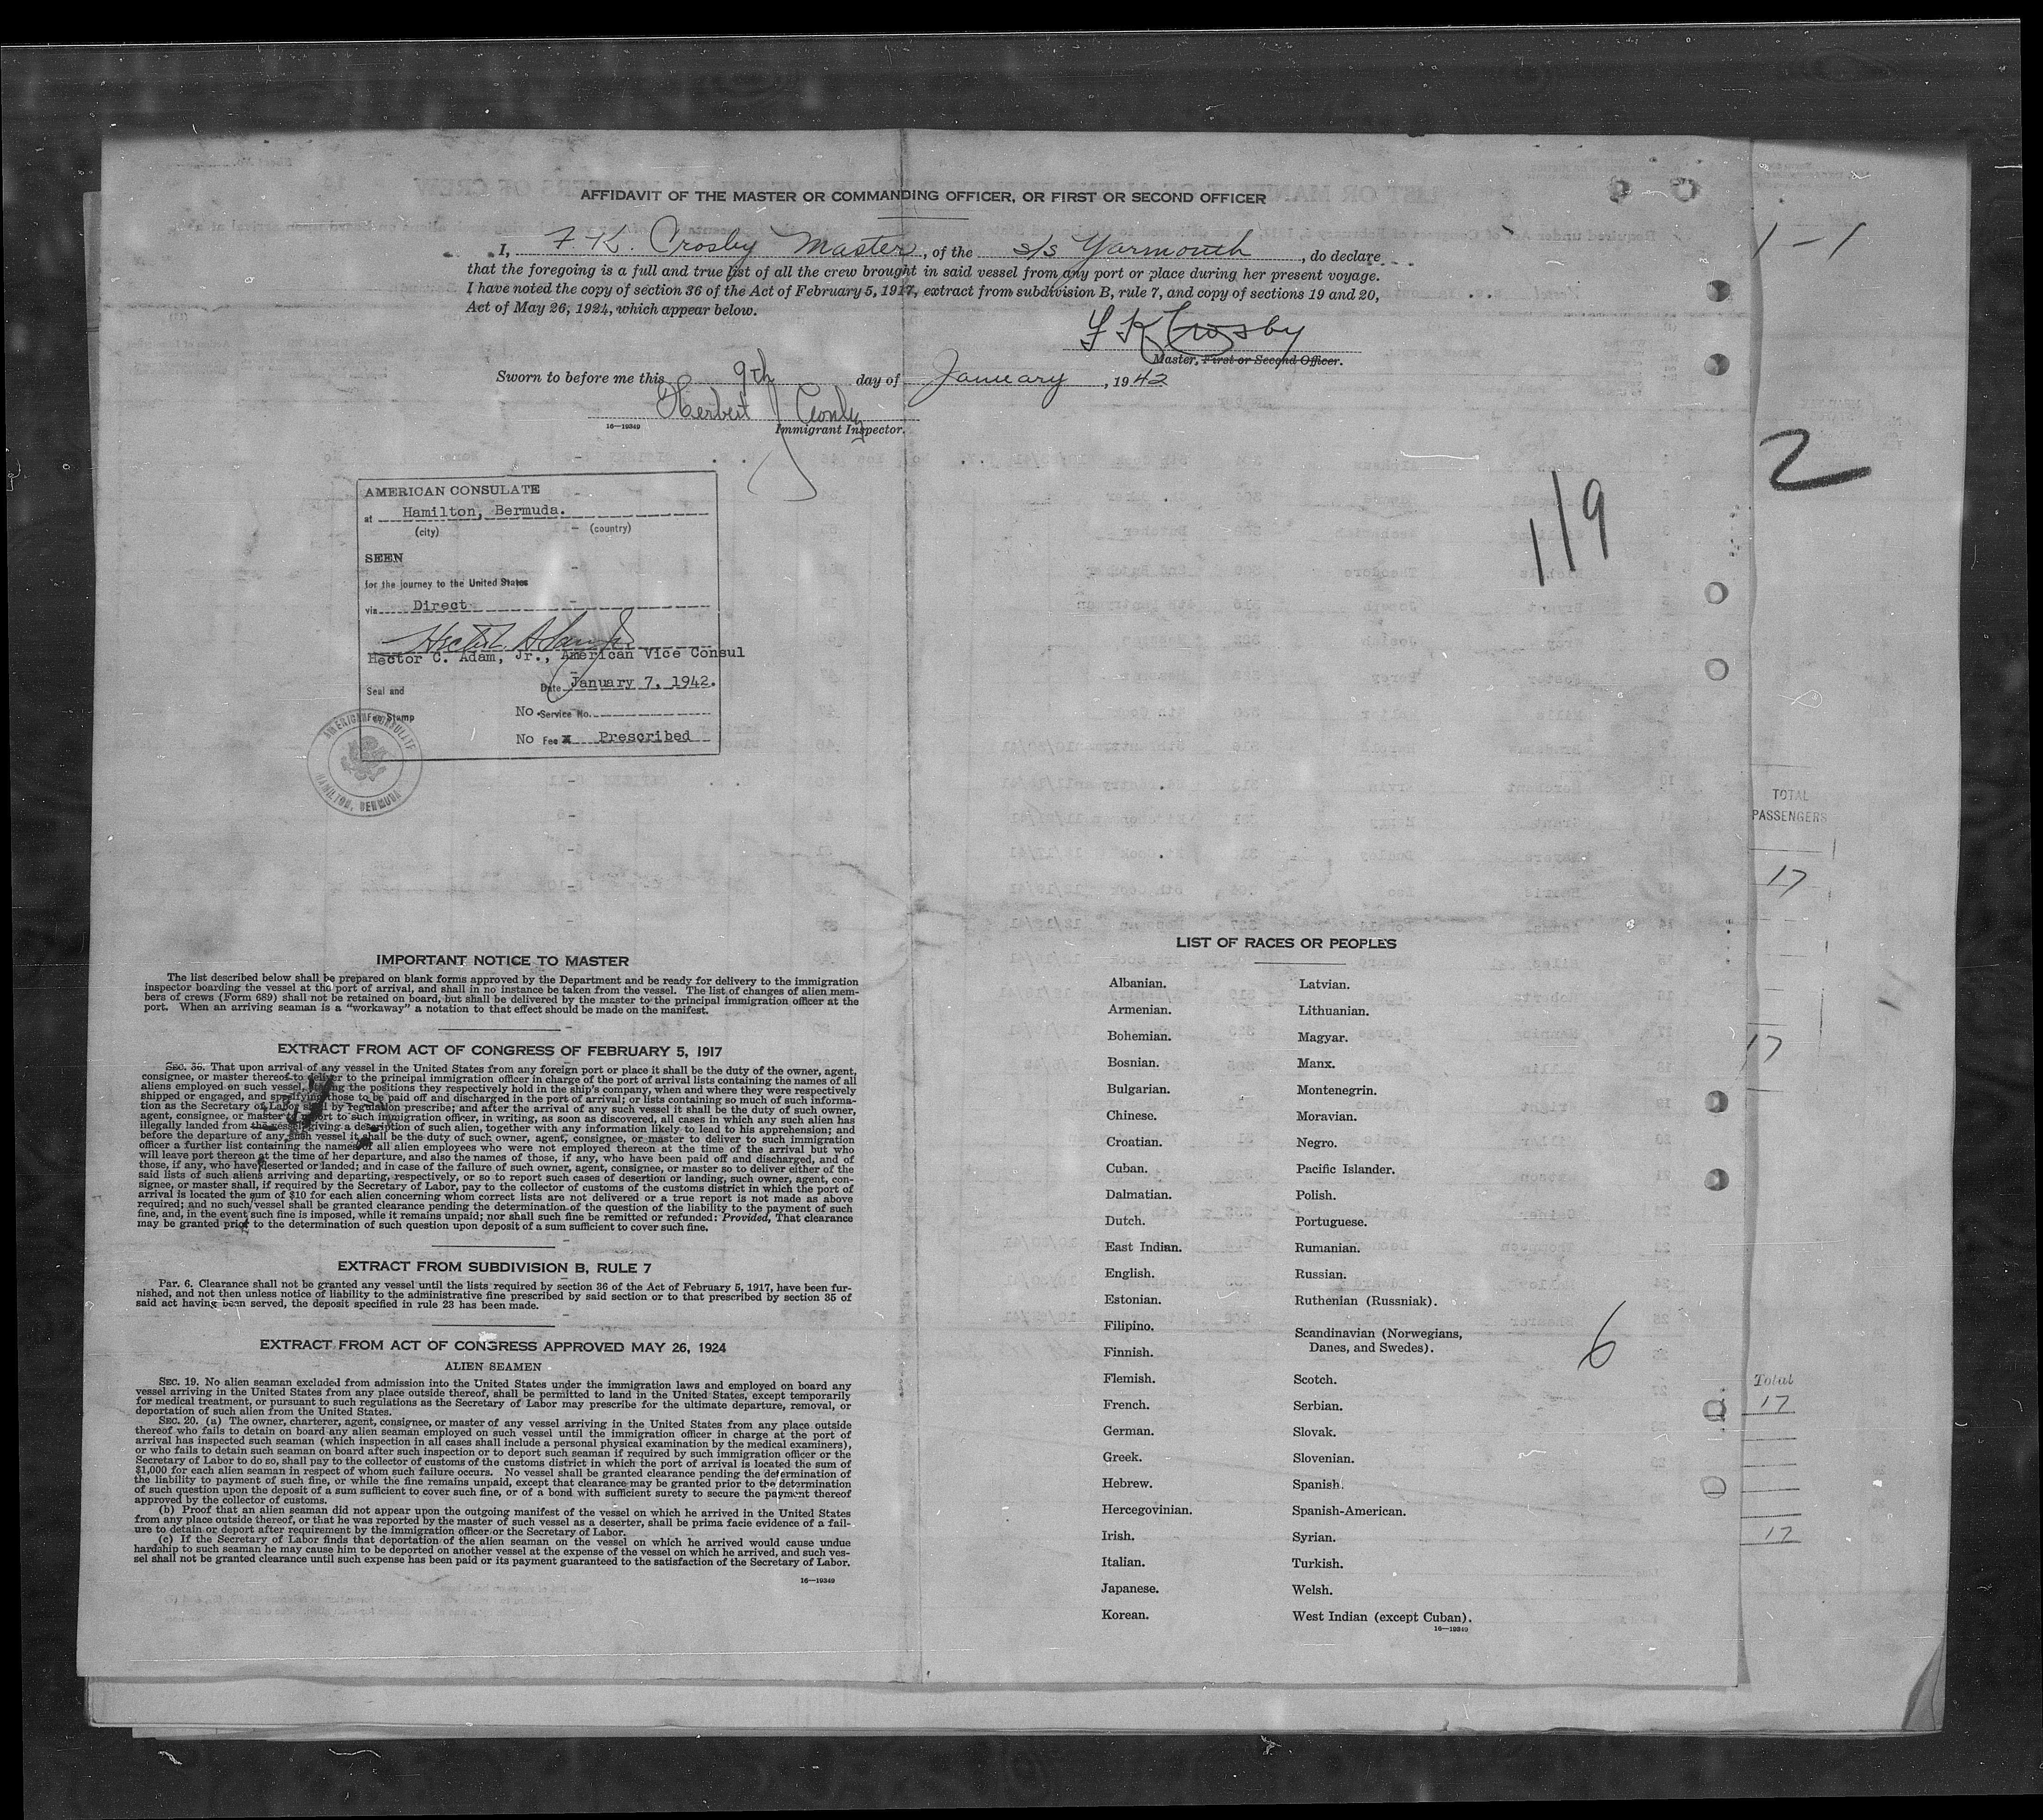 AFFIDAVIT OF THE MASTER OR COMMANDING OFFICER, OR FIRST OR SECOND OFFICER
I, F. K. Crosby Master, of the s/s Yarmouth, do declare
that the foregoing is a full and true list of all the crew brought in said vessel from any port or place during her present voyage.
I have noted the copy of section 36 of the Act of February 5, 1917, extract from subdivision B, rule 7, and copy of sections 19 and 20,
Act of May 26, 1924, which appear below.
F K Crosby
Master, First or Second Officer.
Sworn to before me this 9th day of January, 1942
Herbert J
16—19349
Immigrant Inspector.
1-1
2
119
AMERICAN CONSULATE
at Hamilton, Bermuda.
(city) (country)
SEEN
for the journey to the United States
via Direct
Hector C. Adam, Jr., American Vice Consul
Date January 7, 1942.
Seal and
Fee Stamp
No Service No.
No Fee x Prescribed
AMERICAN CONSULATE
HAMILTON, BERMUDA
TOTAL
PASSENGERS
17
17
IMPORTANT NOTICE TO MASTER
The list described below shall be prepared on blank forms approved by the Department and be ready for delivery to the immigration
inspector boarding the vessel at the port of arrival, and shall in no instance be taken from the vessel. The list of changes of alien mem-
bers of crews (Form 689) shall not be retained on board, but shall be delivered by the master to the principal immigration officer at the
port. When an arriving seaman is a "workaway" a notation to that effect should be made on the manifest.
EXTRACT FROM ACT OF CONGRESS OF FEBRUARY 5, 1917
SEC. 36. That upon arrival of any vessel in the United States from any foreign port or place it shall be the duty of the owner, agent,
consignee, or master thereof to deliver to the principal immigration officer in charge of the port of arrival lists containing the names of all
aliens employed on such vessel, stating the positions they respectively hold in the ship's company, when and where they were respectively
shipped or engaged, and specifying those to be paid off and discharged in the port of arrival; or lists containing so much of such informa-
tion as the Secretary of Labor shall by regulation prescribe; and after the arrival of any such vessel it shall be the duty of such owner,
agent, consignee, or master to report to such immigration officer, in writing, as soon as discovered, all cases in which any such alien has
illegally landed from the vessel, giving a description of such alien, together with any information likely to lead to his apprehension; and
before the departure of any such vessel it shall be the duty of such owner, agent, consignee, or master to deliver to such immigration
officer a further list containing the names of all alien employees who were not employed thereon at the time of the arrival but who
will leave port thereon at the time of her departure, and also the names of those, if any, who have been paid off and discharged, and of
those, if any, who have deserted or landed; and in case of the failure of such owner, agent, consignee, or master so to deliver either of the
said lists of such aliens arriving and departing, respectively, or so to report such cases of desertion or landing, such owner, agent, con-
signee, or master shall, if required by the Secretary of Labor, pay to the collector of customs of the customs district in which the port of
arrival is located the sum of $10 for each alien concerning whom correct lists are not delivered or a true report is not made as above
required; and no such vessel shall be granted clearance pending the determination of the question of the liability to the payment of such
fine, and, in the event such fine is imposed, while it remains unpaid; nor shall such fine be remitted or refunded: Provided, That clearance
may be granted prior to the determination of such question upon deposit of a sum sufficient to cover such fine.
EXTRACT FROM SUBDIVISION B, RULE 7
Par. 6. Clearance shall not be granted any vessel until the lists required by section 36 of the Act of February 5, 1917, have been fur-
nished, and not then unless notice of liability to the administrative fine prescribed by said section or to that prescribed by section 35 of
said act having been served, the deposit specified in rule 23 has been made.
EXTRACT FROM ACT OF CONGRESS APPROVED MAY 26, 1924
ALIEN SEAMEN
SEC. 19. No alien seaman excluded from admission into the United States under the immigration laws and employed on board any
vessel arriving in the United States from any place outside thereof, shall be permitted to land in the United States, except temporarily
for medical treatment, or pursuant to such regulations as the Secretary of Labor may prescribe for the ultimate departure, removal, or
deportation of such alien from the United States.
SEC. 20. (a) The owner, charterer, agent, consignee, or master of any vessel arriving in the United States from any place outside
thereof who fails to detain on board any alien seaman employed on such vessel until the immigration officer in charge at the port of
arrival has inspected such seaman (which inspection in all cases shall include a personal physical examination by the medical examiners),
or who fails to detain such seaman on board after such inspection or to deport such seaman if required by such immigration officer or the
Secretary of Labor to do so, shall pay to the collector of customs of the customs district in which the port of arrival is located the sum of
$1,000 for each alien seaman in respect of whom such failure occurs. No vessel shall be granted clearance pending the determination of
the liability to payment of such fine, or while the fine remains unpaid, except that clearance may be granted prior to the determination
of such question upon the deposit of a sum sufficient to cover such fine, or of a bond with sufficient surety to secure the payment thereof
approved by the collector of customs.
(b) Proof that an alien seaman did not appear upon the outgoing manifest of the vessel on which he arrived in the United States
from any place outside thereof, or that he was reported by the master of such vessel as a deserter, shall be prima facie evidence of a fail-
ure to detain or deport after requirement by the immigration officer or the Secretary of Labor.
(c) If the Secretary of Labor finds that deportation of the alien seaman on the vessel on which he arrived would cause undue
hardship to such seaman he may cause him to be deported on another vessel at the expense of the vessel on which he arrived, and such ves-
sel shall not be granted clearance until such expense has been paid or its payment guaranteed to the satisfaction of the Secretary of Labor.
16—19349
LIST OF RACES OR PEOPLES
Albanian.
Armenian.
Bohemian.
Bosnian.
Bulgarian.
Chinese.
Croatian.
Cuban.
Dalmatian.
Dutch.
East Indian.
English.
Estonian.
Filipino.
Finnish.
Flemish.
French.
German.
Greek.
Hebrew.
Hercegovinian.
Irish.
Italian.
Japanese.
Korean.
Latvian.
Lithuanian.
Magyar.
Manx.
Montenegrin.
Moravian.
Negro.
Pacific Islander.
Polish.
Portuguese.
Rumanian.
Russian.
Ruthenian (Russniak).
Scandinavian (Norwegians,
Danes, and Swedes).
Scotch.
Serbian.
Slovak.
Slovenian.
Spanish.
Spanish-American.
Syrian.
Turkish.
Welsh.
West Indian (except Cuban).
16—19349
6
Total
17
17